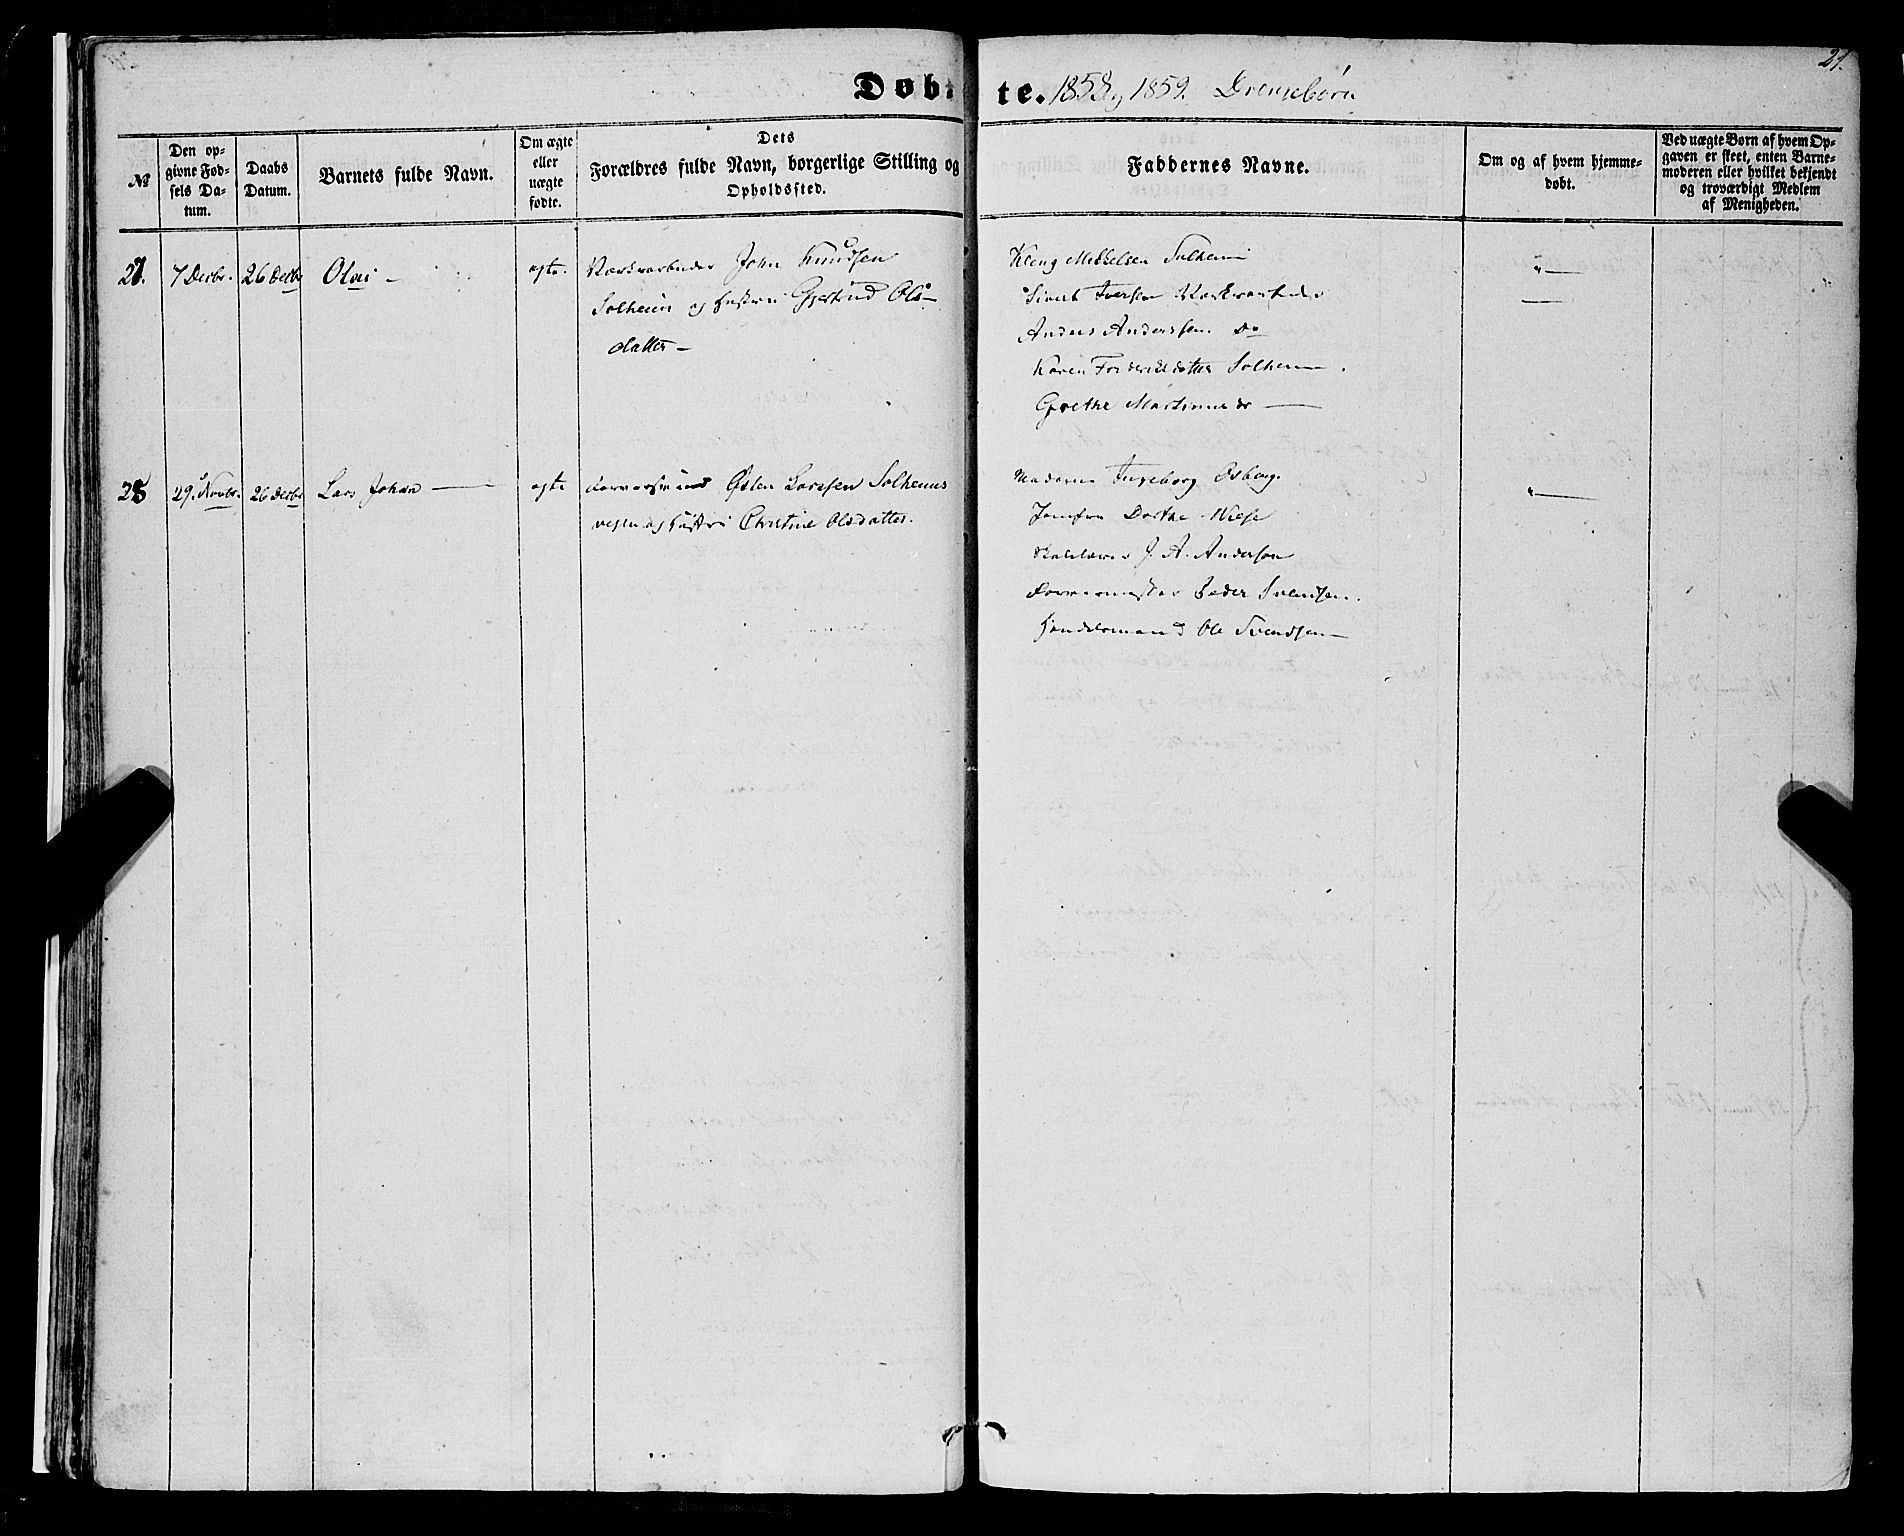 21.
Døbte. 1858 og 1859. Drengebørn
№
Den opgivne Fødsels Datum.
Daabs Datum.
Barnets fulde Navn.
Om ægte eller uægte fødte.
Dets Forældres fulde Navn, borgerlige Stilling og Opholdssted.
Faddernes Navne.
Om og af hvem hjemmedøbt.
Ved uægte Børn af hvem Opgaven er skeet, enten Barnemoderen eller hvilket bekjendt og troværdigt Medlem af Menigheden.
27. 7 Decbr. 26 Decbr Olai — ægte. Værksarbeider John Knudsen
Solheim og Hustru Gjertrud Ols-
datter —
Mikkelsen Solheim
Sivert Iversen Værksarbeider
Anders Anderssen Do
Karen Fredriksdatter Solheim.
Grethe Martinus do —
28 29. Novbr. 26 Decbr Lars Johan — ægte Østen Larssen Solheims
veien og Hustru Christine Olsdatter.
Madame Ingeborg Osberg.
Jomfru Dorthe Nilse
J. A. Andersen
Formermester Peder Svendsen.
Handelsmand Ole Svendsen —